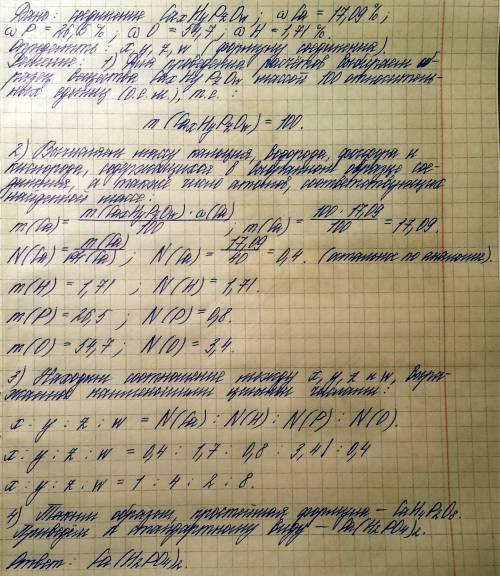 Дано: соединение CaxHyPzOw; ω Ca = 17,09%;
ω P = 26,5%; ω O = 54,7; ω H = 1,71%.
Определить: x, y, z, w (формулу соединения).
Решение: 1) Для проведения расчётов выбираем об-
разец вещества CaxHyPzOw массой 100 относитель-
ных единиц (о.е.м.), т.е.:
m(CaxHyPzOw) = 100.
2) Вычисляем массу кальция, водорода, фосфора и
кислорода, содержащихся в выбранном образце со-
единения, а также число атомов, соответствующих
найденной массе:
m(Ca) = m(CaxHyPzOw) · ω(Ca) / 100; m(Ca) = 100 · 17,09 / 100 = 17,09.
N(Ca) = m(Ca) / (Ca); N(Ca) = 17,09 / 40 = 0,4. (остальные по аналогии).
m(H) = 1,71; N(H) = 1,71.
m(P) = 26,5; N(P) = 0,8.
m(O) = 54,7; N(O) = 3,4.
3) Находим соотношение между x, y, z и w, выра-
женное наименьшими целыми числами:
x : y : z : w = N(Ca) : N(H) : N(P) : N(O).
x : y : z : w = 0,4 : 1,7 : 0,8 : 3,4 | : 0,4
x : y : z : w = 1 : 4 : 2 : 8.
4) Таким образом, простейшая формула – CaH4P2O8.
Приводим к стандартному виду – Ca(H2PO4)2.
Ответ: Ca(H2PO4)2.